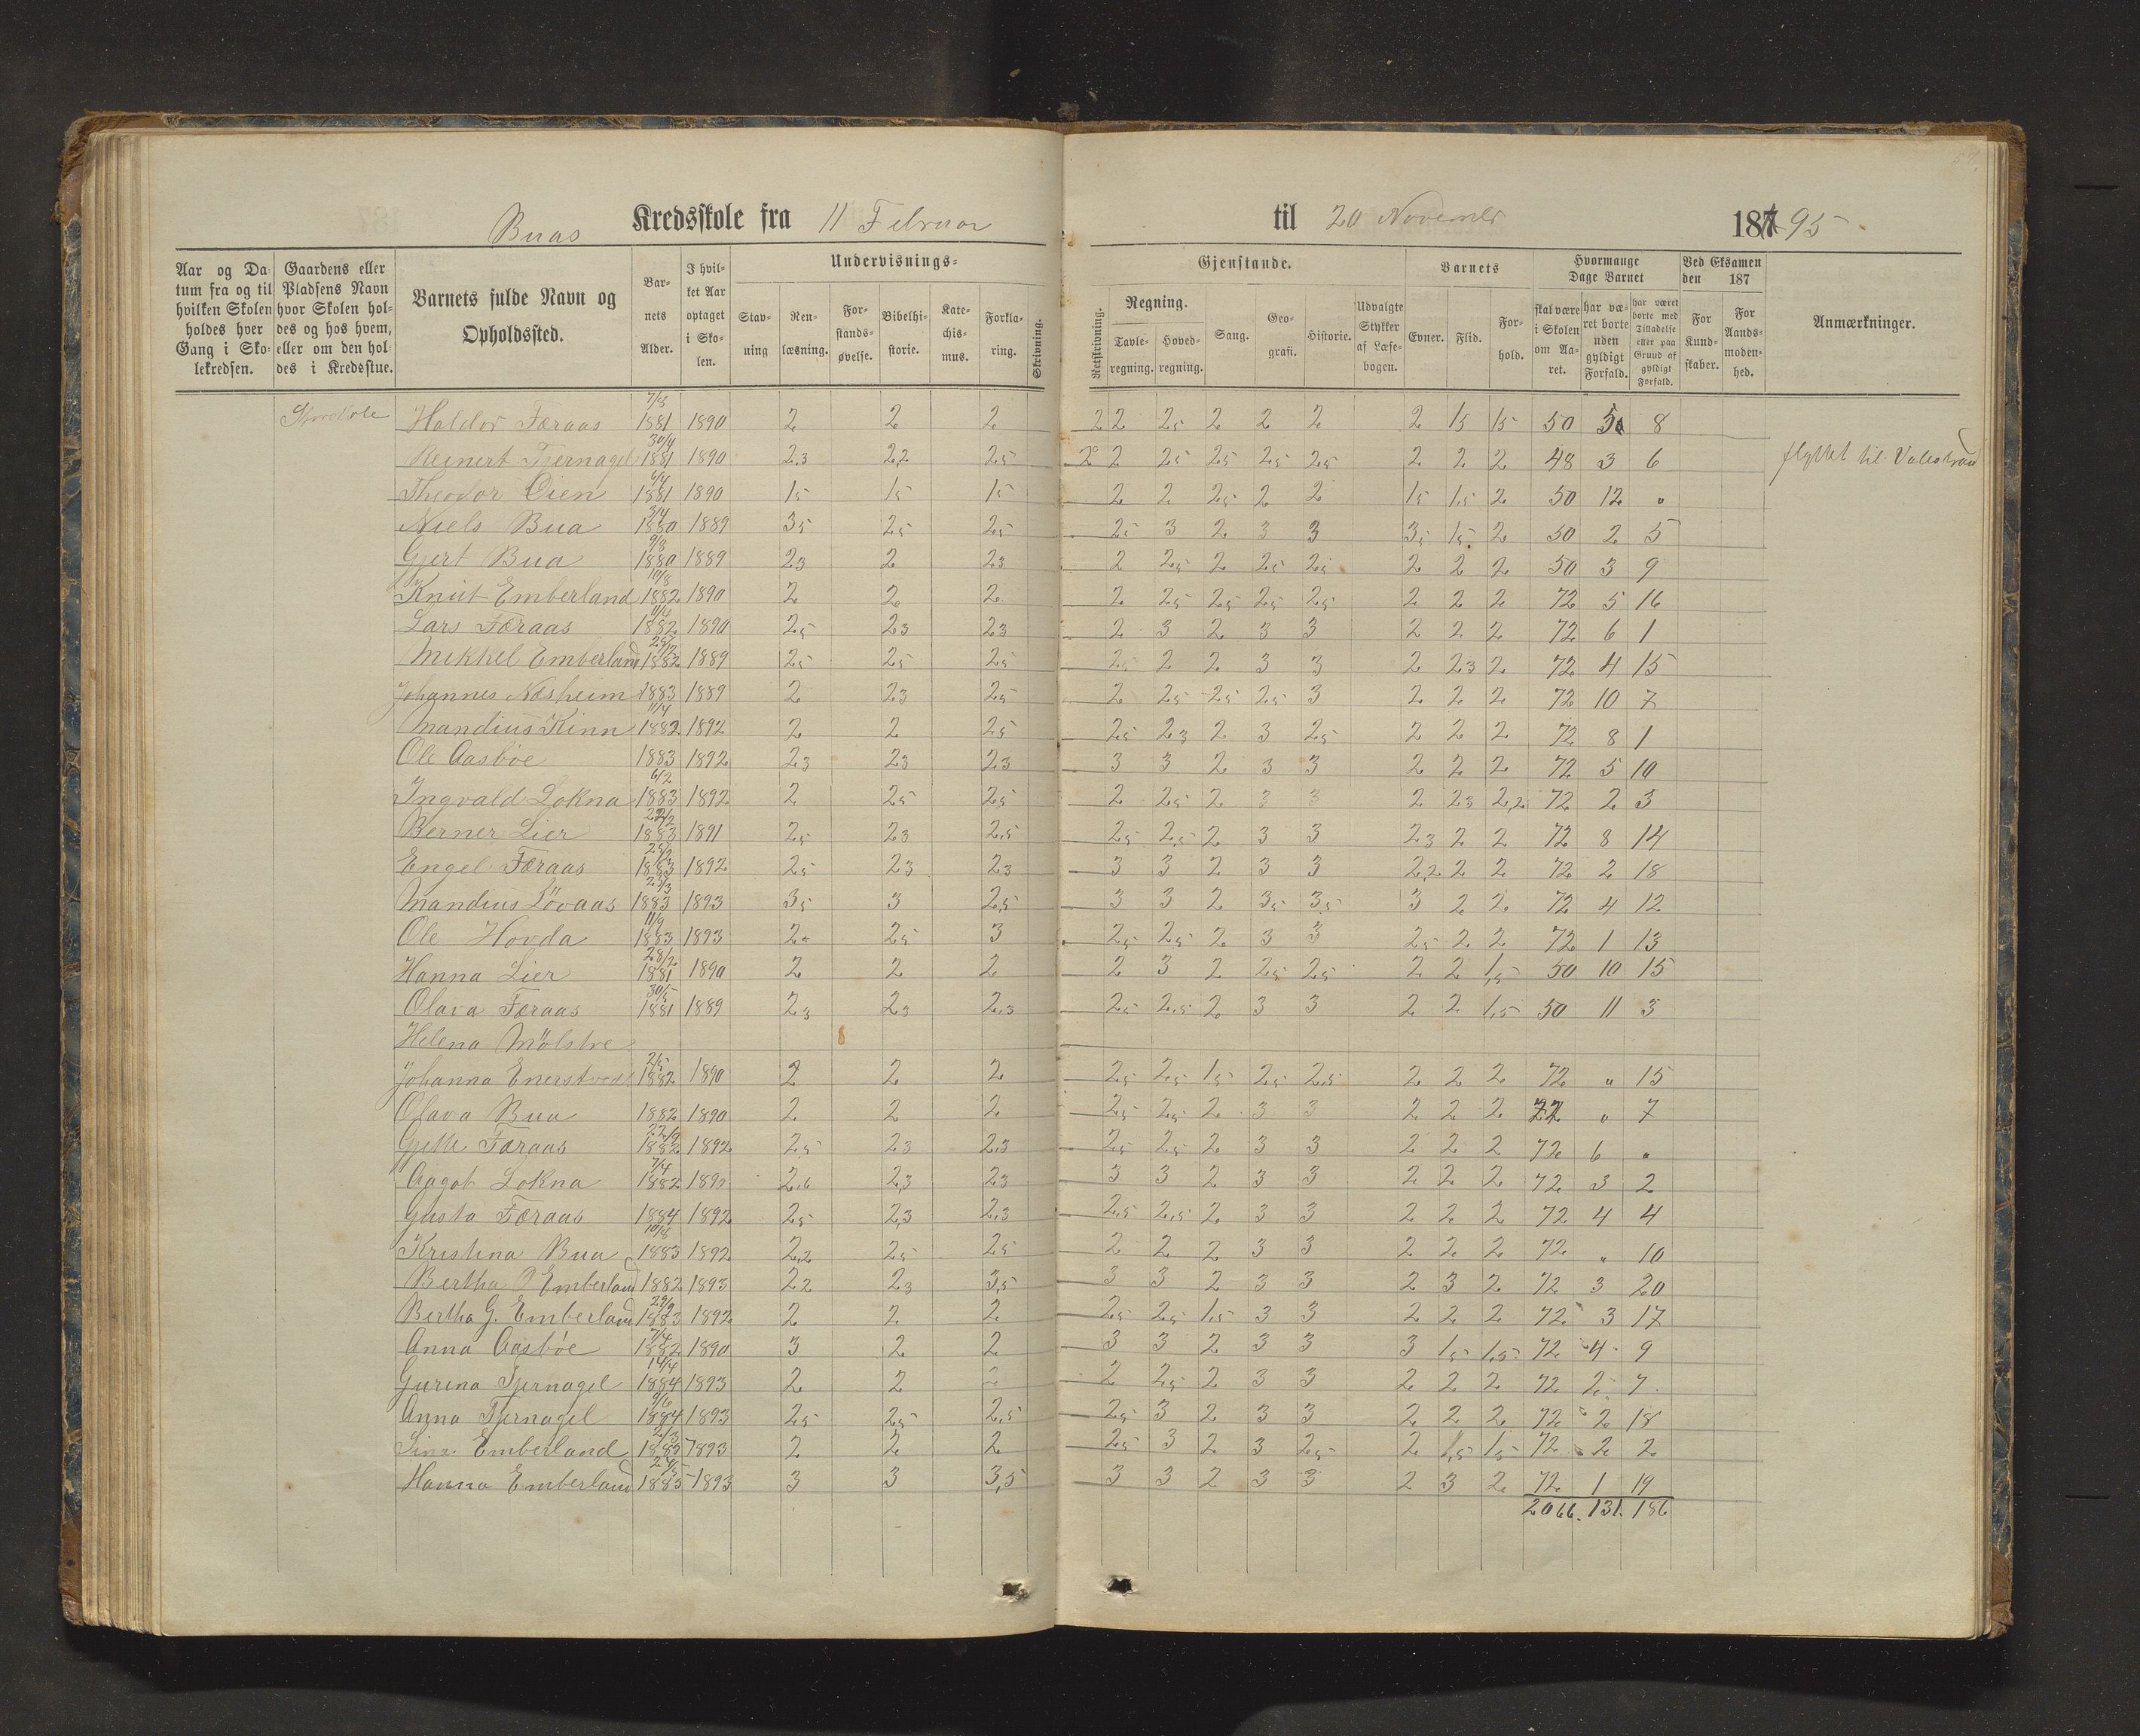 Buas Kredsskole fra 11 Februar til 20 November 1895
Aar og Datum fra og til hvilken Skolen holdes hver Gang i Skolekredsen.
Gaardens eller Pladsens Navn hvor Skolen holdes og hos hvem, eller om den holdes i Kredsstue.
Barnets fulde Navn og Opholdssted.
Barnets Alder.
I hvilket Aar optaget i Skolen.
Undervisnings-Gjenstande.
Stavning
Renlæsning.
Forstandsøvelse.
Bibelhistorie.
Katechismus.
Forklaring.
Skrivning.
Retskrivning.
Regning.
Tavleregning.
Hovedregning.
Sang.
Geografi.
Historie.
Udvalgte Stykker af Læsebogen.
Barnets
Evner.
Flid.
Forhold.
Hvormange Dage Barnet
skal være i Skolen om Aaret.
har været borte uden gyldigt Forfald.
har været borte med Tilladelse eller paa Grund af gyldigt Forfald.
Ved Eksamen den 187
For Kundskaber.
For Aandsmodenhed.
Anmærkninger.
Haldor Færaas 7/8 1881 1890 2 2 2 2 2 25 2 2 2 2 15 15 50 50 8
Reinert Tjernagel 30/4 1881 1890 2,3 22 25 2 2 25 25 25 25 2 2 2 48 3 6 flyttet til
Theodor Øien 6/4 1881 1890 15 15 15 2 2 25 2 2 15 1,5 2 50 12 "
Niels Bua 3/4 1880 1889 35 25 25 25 3 2 3 3 35 15 2 50 2 5
Gjert Bua 9/8 1880 1889 23 2 23 2 25 2 25 25 2 2 2 50 3 9
Knut Emberland 10/8 1882 1890 2 2 2 2 25 25 25 25 2 2 2 72 5 16
Lars Færaas 11/4 1882 1890 25 23 23 2 3 2 3 3 2 2 2 72 6 1
Mikkel Emberland 1882 1889 25 25 25 25 2 2 3 3 2 23 2 72 4 15
Johannes Næsheim 1883 1889 2 23 25 2 25 25 25 3 2 2 2 72 10 7
Mandius Kinn 11/4 1882 1892 2 2 25 25 23 2 3 25 2 2 2 72 8 1
Ole Aasbøe 1883 1892 23 23 23 3 3 2 3 3 2 2 2 72 5 10
Ingvald Lokna 6/2 1883 1892 2 25 25 2 25 2 3 3 2 23 2,2 72 2 3
Berner Lier 1883 1891 25 23 2,5 25 2,5 2 3 3 23 2 2 72 8 14
Engel Færaas 1883 1892 25 23 23 3 3 2 3 3 2,2 2 2 72 2 18
Mandius Løvaas 1883 1893 35 3 2,5 3 3 2 35 35 3 2 2 72 4 12
Ole Hovda 11/9 1883 1893 2 25 3 25 25 2 3 3 25 2 2 72 1 13
Hanna Lier 28/2 1881 1890 2 2 2 2 3 2 25 25 2 2 1,5 50 10 15
Olava Færaas 30/5 1881 1889 23 23 2,3 25 2,5 2 3 3 2 2 1,5 50 11 3
Helena Mølstre
Johanna 2/5 1882 1890 2 2 2 25 25 15 25 2,5 2 2 2 72 " 15
Olava Bua 1882 1890 2 2 2 25 25 2 3 3 2 2 2 72 " 7
Gjetle Færaas 22/9 1882 1892 25 23 2,3 25 25 2 3 3 2 2 2 72 6 "
Aagot Lokna 7/4 1882 1890 2,6 2,3 23 3 3 2 3 3 2 2 2 72 3 2
Gusta Færaas 1884 1892 25 2,3 2,3 2,5 2,5 2 3 3 2 2 2 72 4 4
Kristina Bua 10/8 1883 1892 2,2 25 25 2 2 2 3 3 2 2 2 72 " 10
Bertha O Emberland 1882 1893 22 23 3,5 3 3 2 3 3 2 3 2 72 3 20
Bertha G. Emberland 29/9 1883 1892 2 2 2 25 25 15 3 3 2 2 2 72 3 17
Anna Aasbøe 7/4 1882 1890 3 2 2 3 3 2 3 3 3 15 1,5 72 4 9
Gurina Tjernagel 14/4 1884 1893 2 2 2 2 25 2 3 3 2 2 2 72 2 7
Anna Tjernagel 9/6 1884 1893 25 25 2,5 25 3 2 3 3 2 2 2 72 2 18
Sina Emberland 2/3 1885 1893 2 2 2 25 3 2 3 25 2 1,5 15 72 2 2
Hanna Emberland 1885 1893 3 3 3,5 3 3 2 3 3 2 3 2 72 1 19
2066. 131. 186